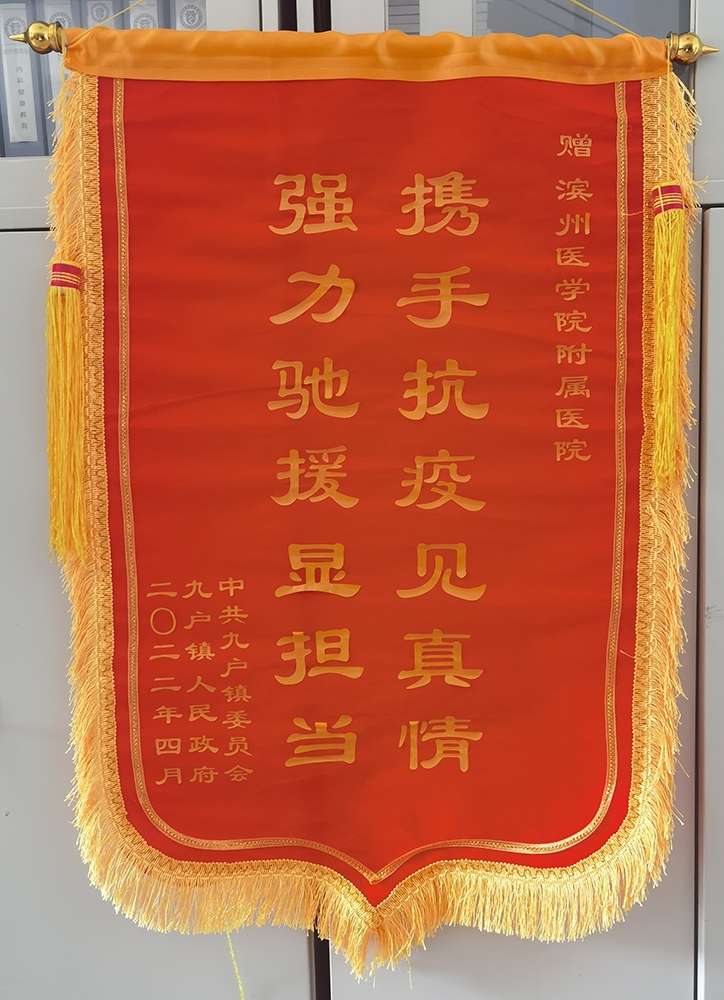 赠 滨州医学院附属医院
携手抗疫见真情
强力驰援显担当
中共九户镇委员会
九户镇人民政府
二〇二二年四月